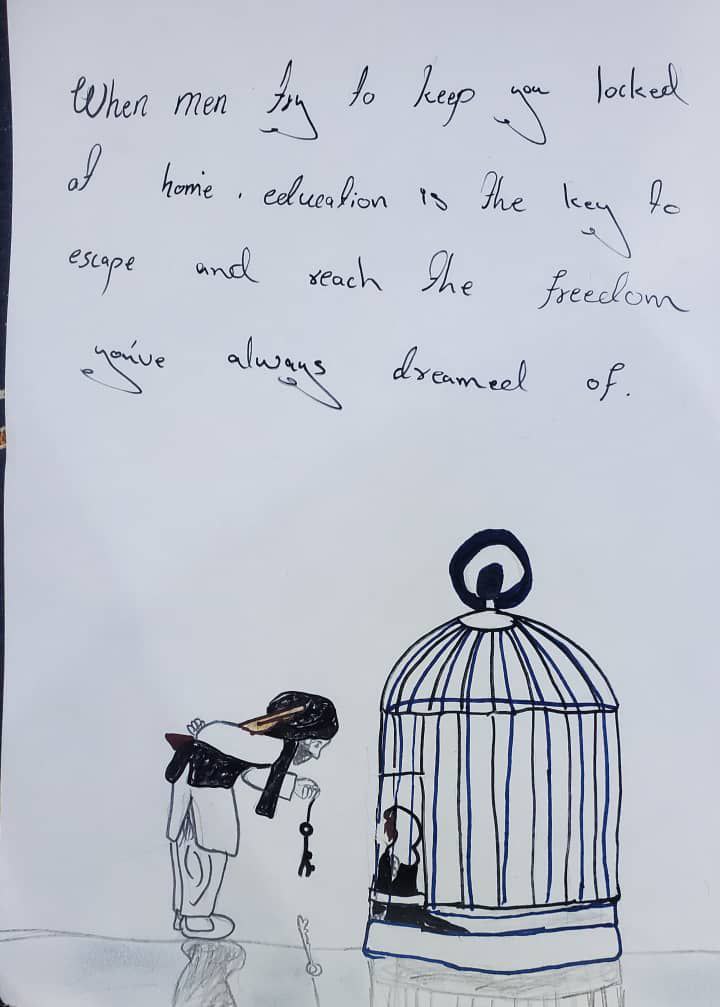 When men try to keep you locked
at home. education is the key to
escape and reach the freedom
you've always dreamed of.